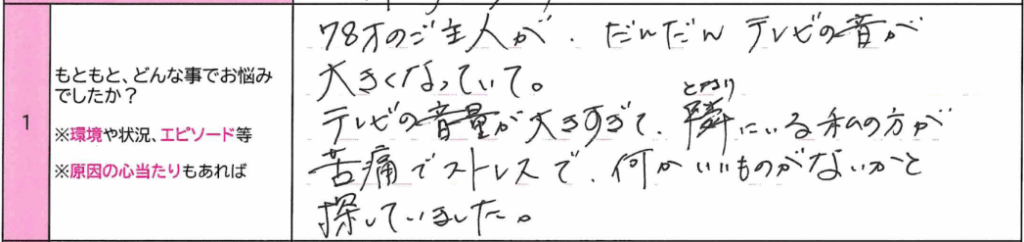 1
もともと、どんな事でお悩み
でしたか?
※環境や状況、エピソード等
※原因の心当たりもあれば
78才のご主人が、だんだん テレビの音が
大きくなっていて。
テレビの音量が大きすぎて、隣にいる私の方が
となり
苦痛でストレスで、何かいいものがないかと
探していました。